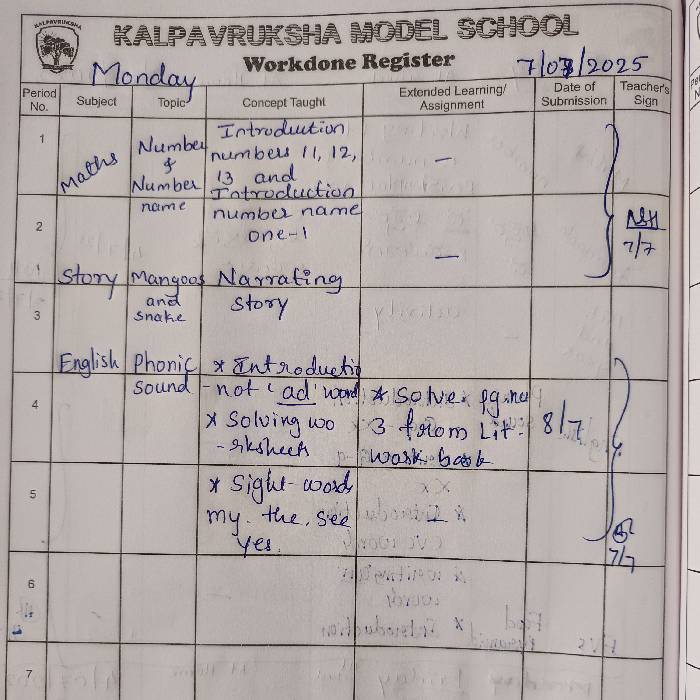 KALPAVRUKSHA
KALPAVRUKSHA MODEL SCHOOL
Workdone Register
Monday
7/07/2025
Period No.
Subject
Topic
Concept Taught
Extended Learning/ Assignment
Date of Submission
Teacher's Sign
1
Maths
Number
&
Number
name
Introduction
numbers 11, 12,
13 and
Introduction
number name
one-1
—
7/7
2
1
Story
Mangoos
and
snake
Narrating
story
—
3
English
Phonic
sound
* Introductio
-not 'ad' word
* Solving wo
-rksheets
* Solve pg.no
3 from Lit.
work book
8/7
4
* Sight-words
my. the. see
yes.
—
7/7
5
6
7